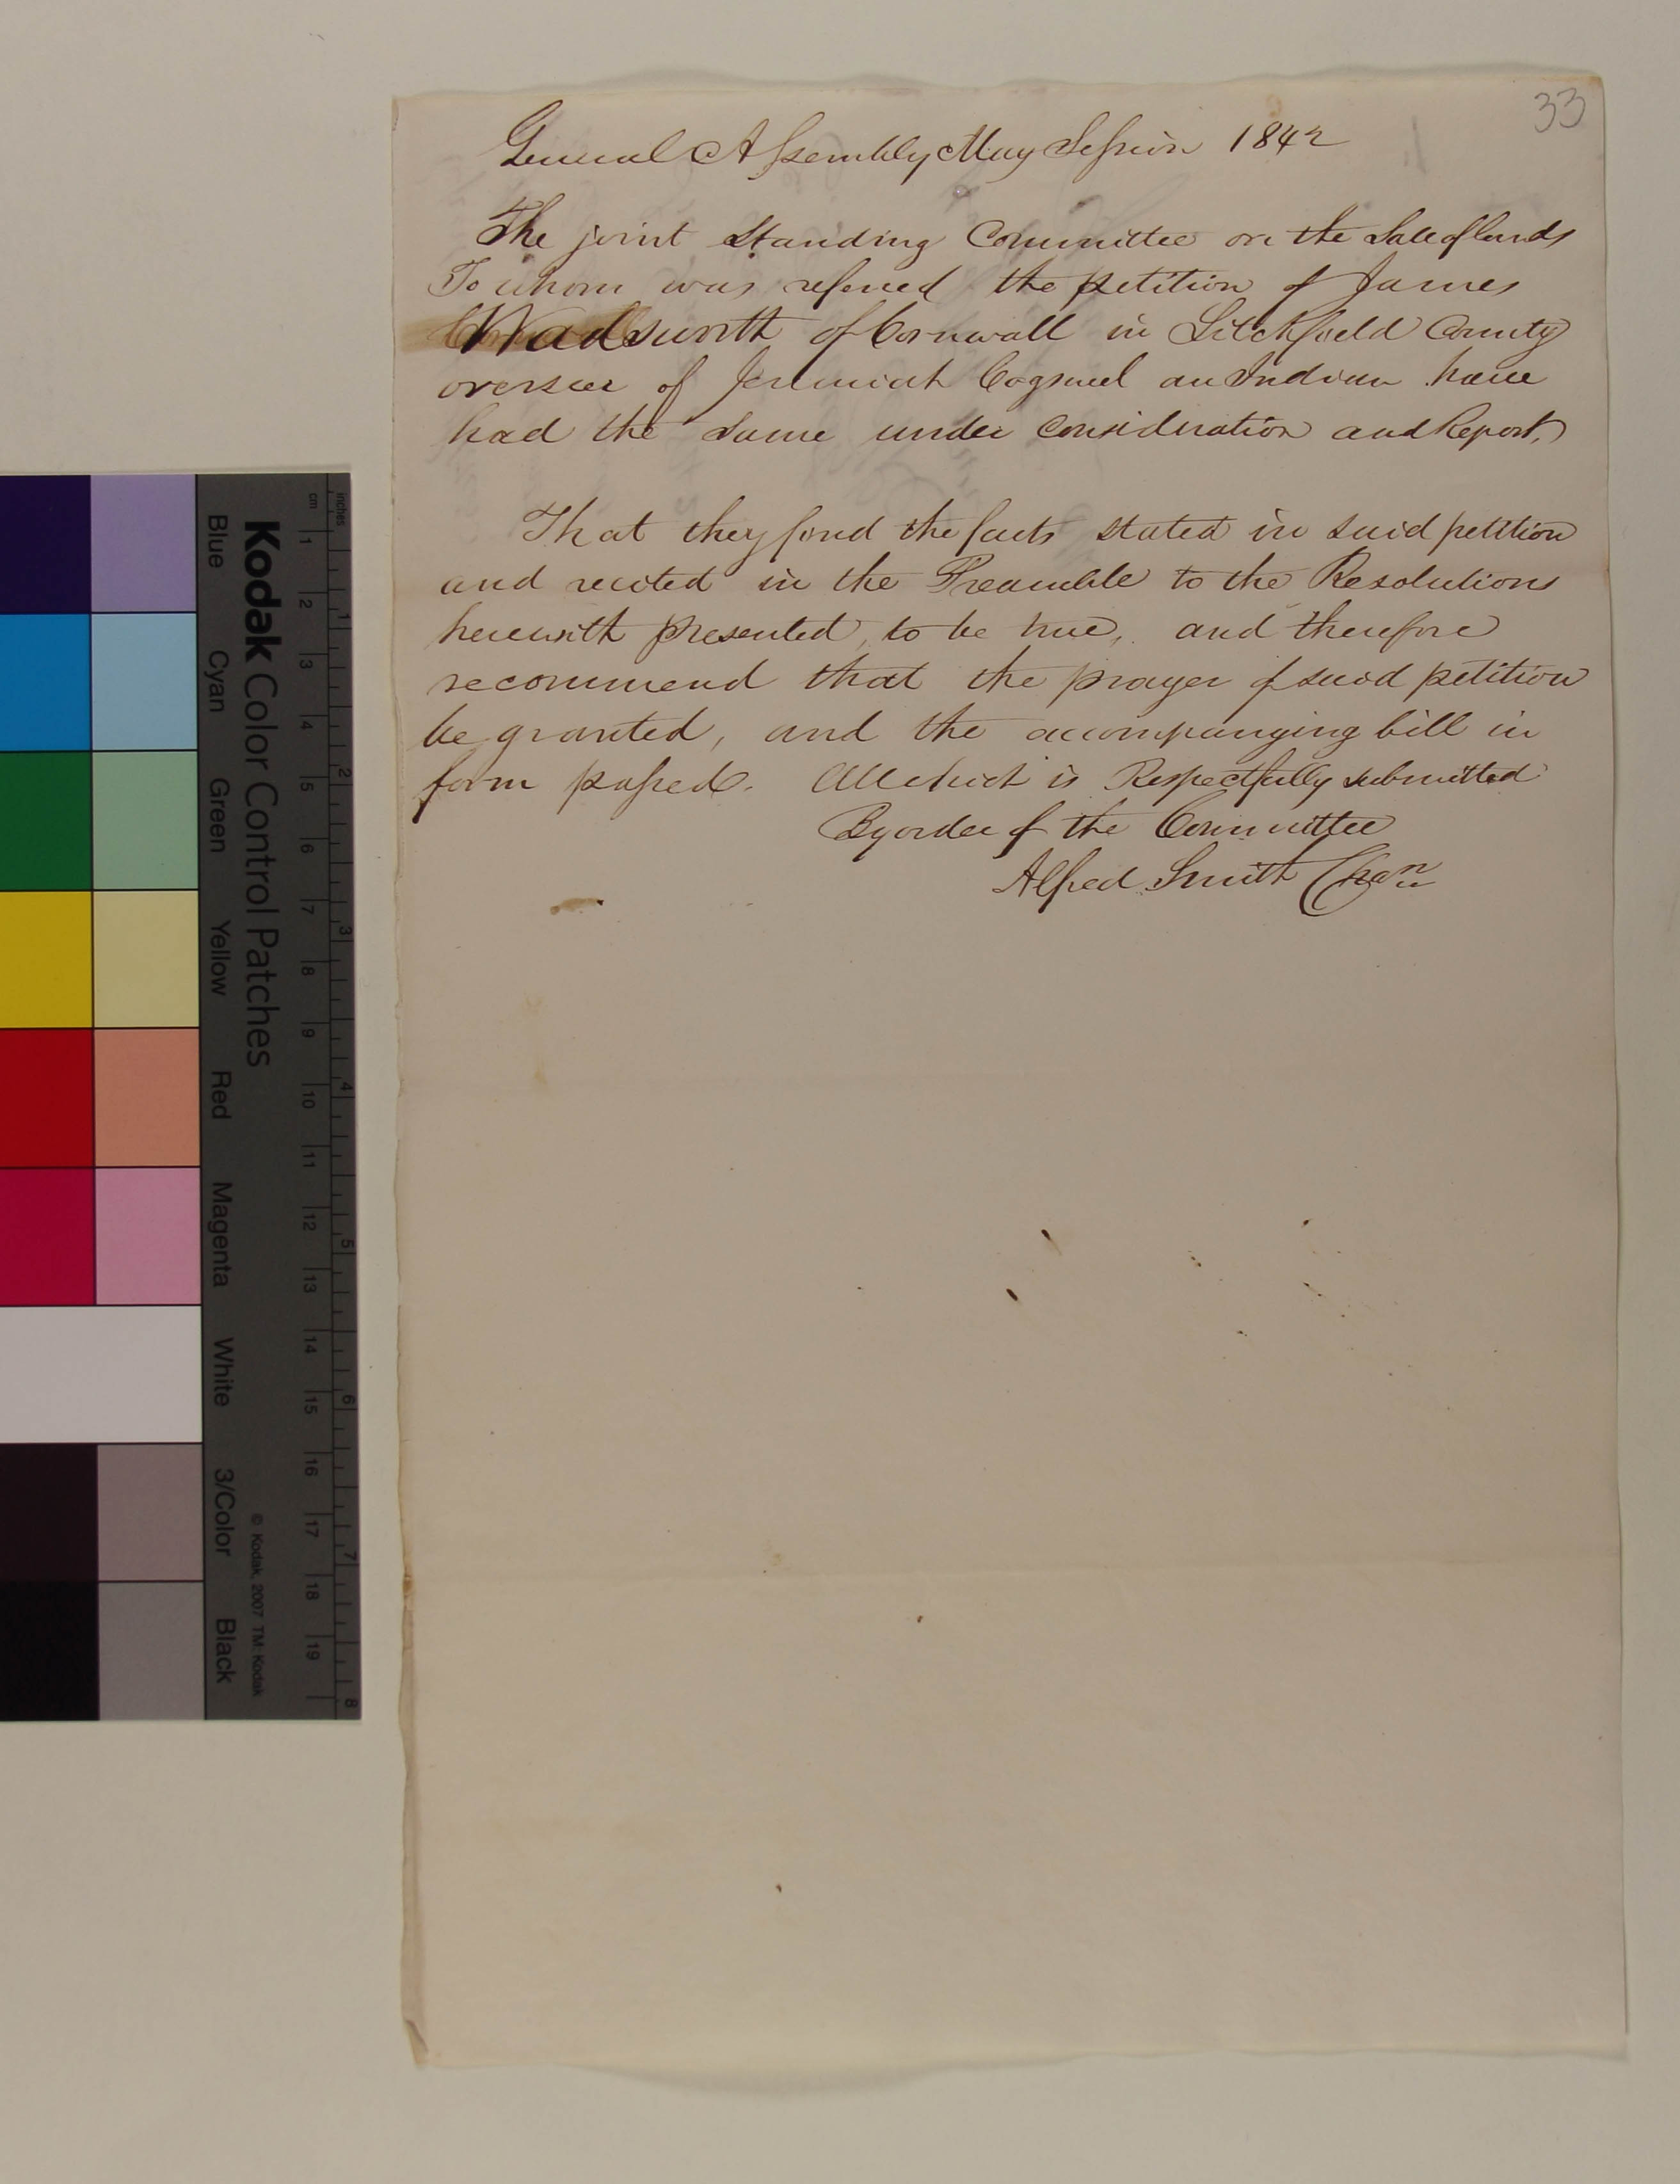 33
General Assembly May Session 1842
The joint Standing Committee on the Sale of lands
To whom was refered the petition of James
Wadsworth of Cornwall in Litchfield County
overseer of Jeremiah Cogswel an Indian have
had the same under consideration and Report,
That they find the facts stated in said petition
and recited in the Preamble to the Resolutions
herewith presented, to be true, and therefore
recommend that the prayer of said petition
be granted, and the accompanying bill in
form passed. All which is Respectfully submitted
By order of the Committee
Alfred Smith Chan
Kodak Color Control Patches
Blue Cyan Green Yellow Red Magenta White 3/Color Black
© Kodak, 2007 TM: Kodak
cm 1 2 3 4 5 6 7 8 9 10 11 12 13 14 15 16 17 18 19
inches 1 2 3 4 5 6 7 8